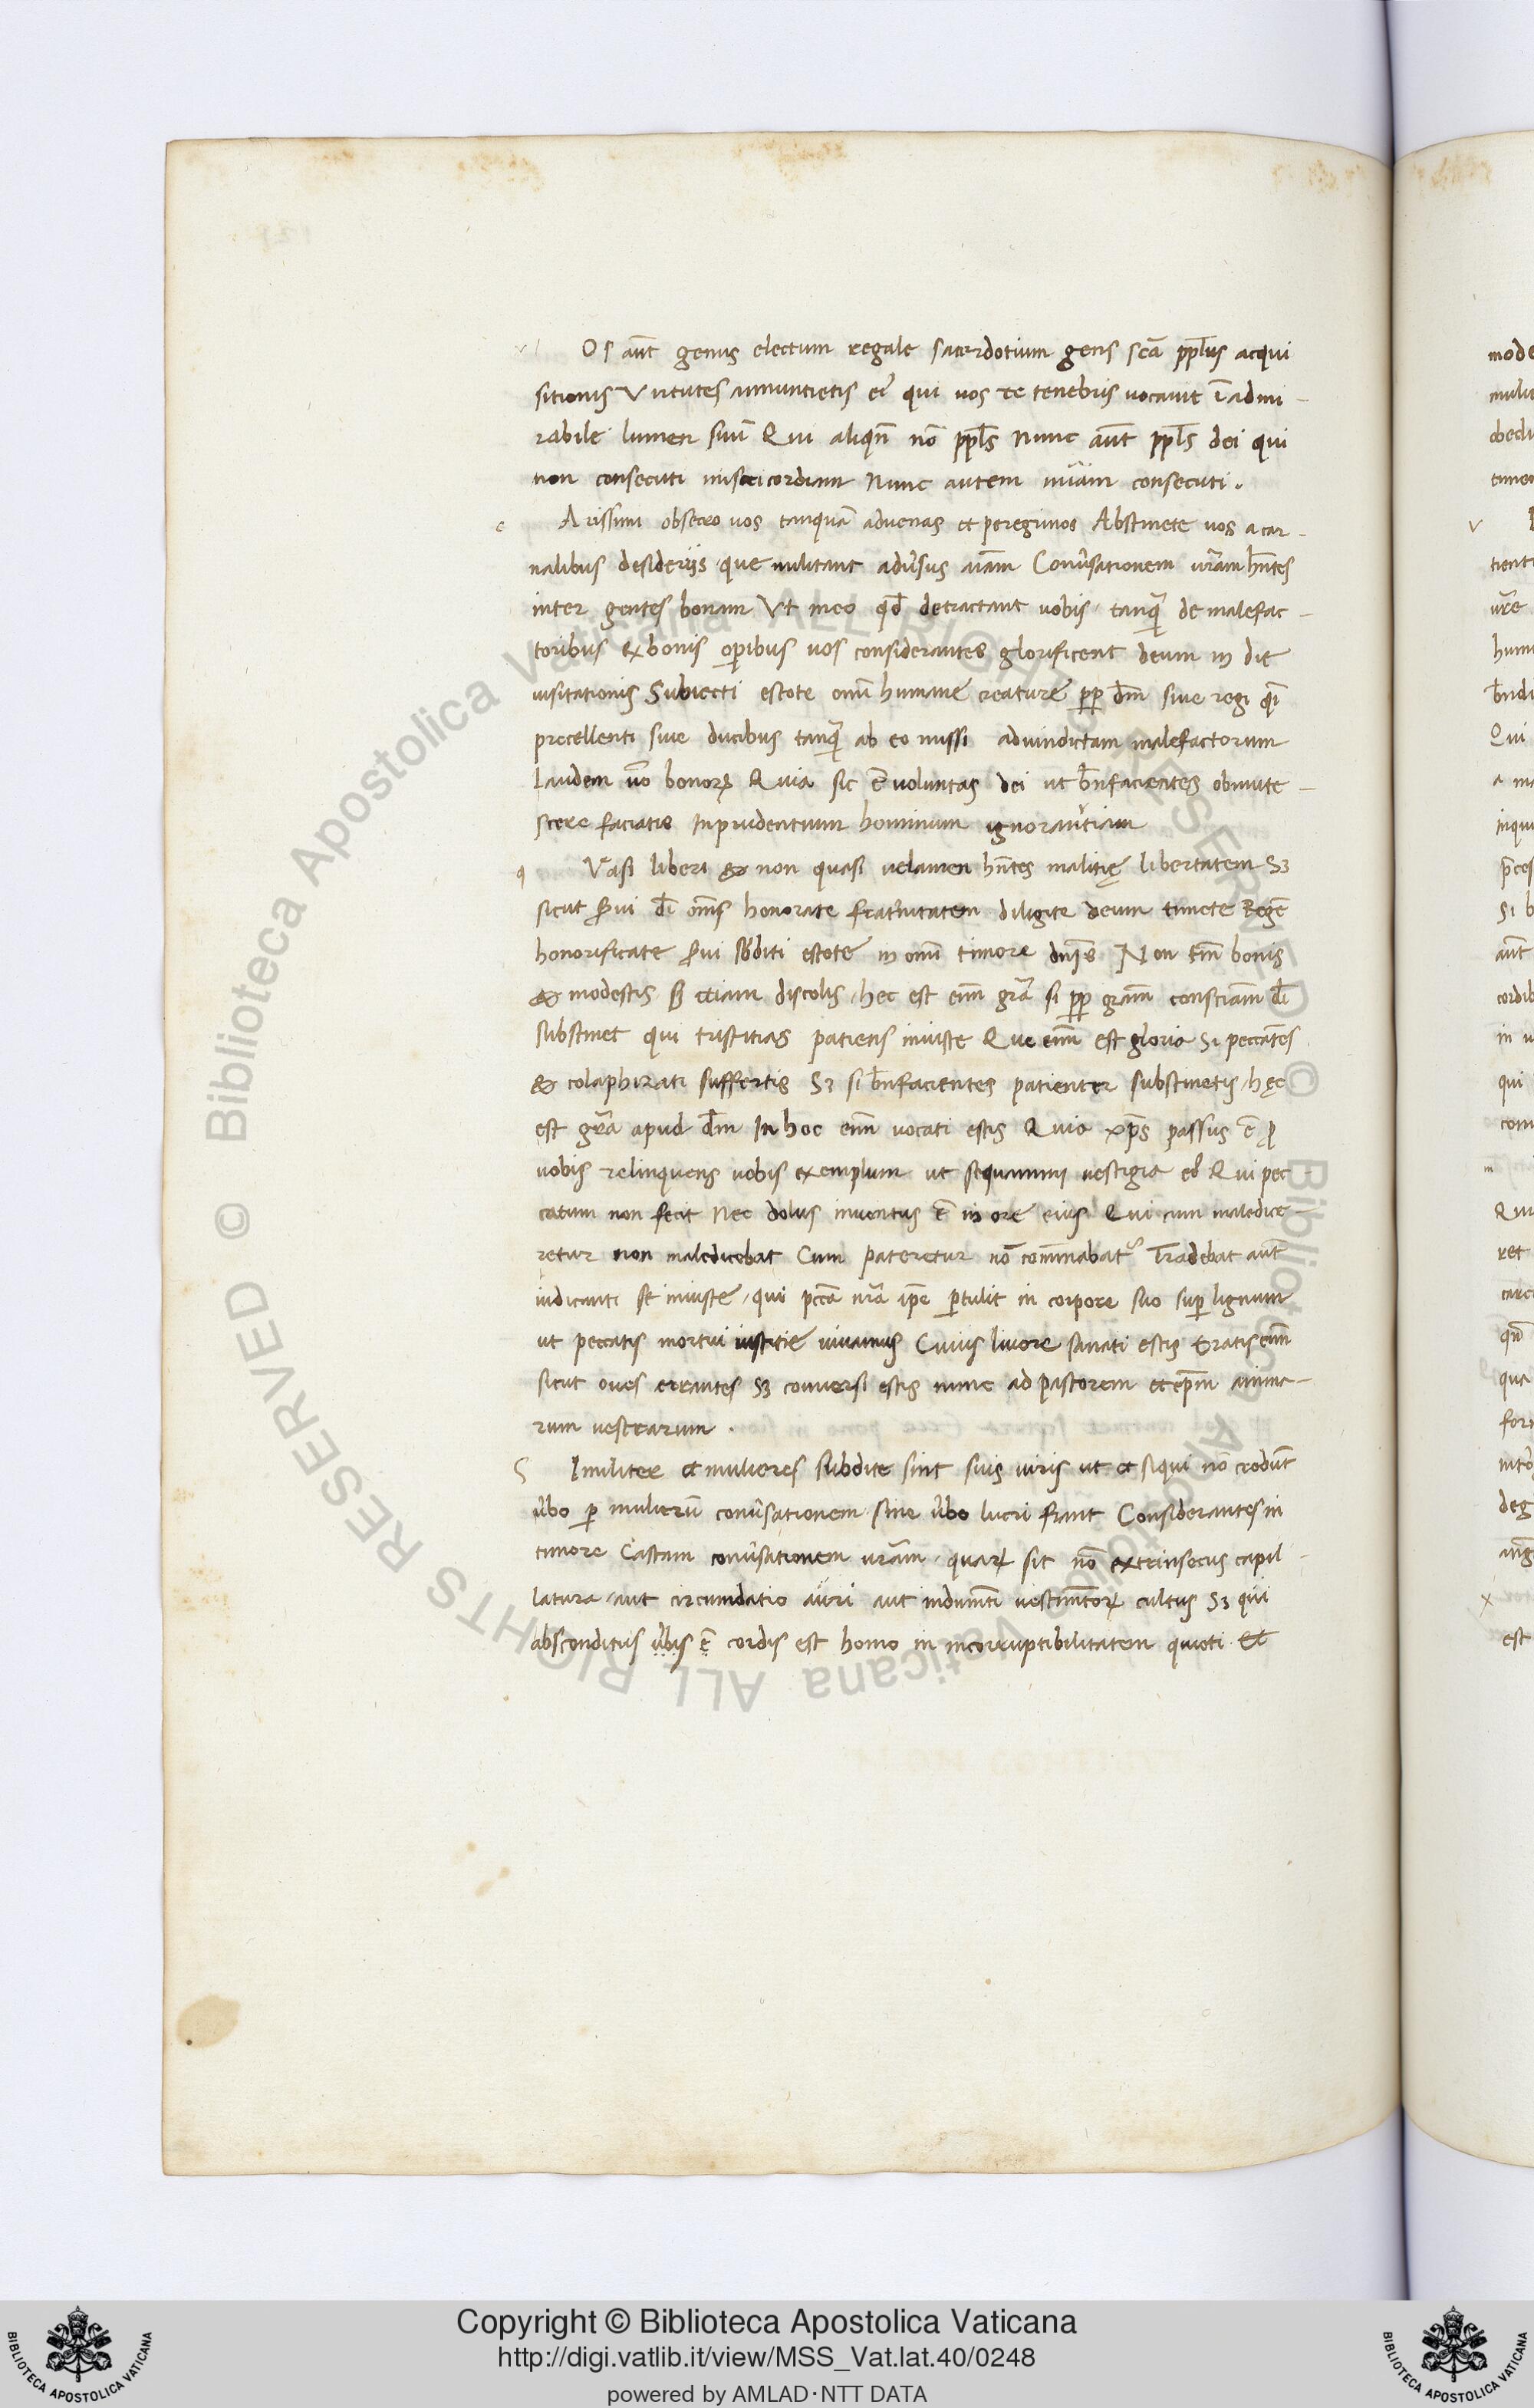 v Os aūt genus electum regale sacerdotium gens scā ppl̄us acqui
sitionis Virtutes annuntietis ei᷑ qui uos de tenebris uocauit ī admi-
rabile lumen suū Qui aliqn̄ nō ppl̄s Nunc aūt ppl̄s dei qui
non consecuti misericordiam Nunc autem mīam consecuti.
c Arissimi obsecro uos tanquā aduenas et peregrinos Abstinete uos a car-
nalibus desiderijs que militant adũsus aīam Conũsationem ur̄am hn̄tes
inter gentes bonam Vt in eo qd̄ detractant uobis tanqꝫ de malefac-
toribus ex bonis oꝑibus uos considerantes glorificent deum in die
uisitationis Subiecti estote omī humane creature ꝓp dm̄ siue regi qī
precellenti siue ducibus tanqꝫ ab eo missi aduindictam malefactorum
laudem ūo bonoꝝ Quia sic ē uoluntas dei ut bn̄facientes obmute-
scere faciatis Inprudentium hominum ignorantiam
q Vasi liberi & non quasi uelamen hn̄tes malitię libertatem Sꝫ
sicut ẜui dī omīs honorate frat̃nitatem diligite deum timete Regē
honorificate ẜui sb̄diti estote in omī timore dnīs Non tm̄ bonis
& modestis sꝫ etiam discolis hec est enī grā si ꝓp gram̄ consciam̄ dī
substinet qui tristitias patiens iniuste Que enī est gloria Si peccātes
& colaphizati suffertis Sꝫ si bn̄facientes patienter substinetis hęc
est grā apud dm̄ In hoc enī uocati estis Quia xp̄s passus ē ꝓ
uobis relinquens uobis exemplum ut sequamini uestigia ei᷑ Qui pec-
catum non fecit Nec dolus inuentus ē in ore eius Qui cum maledice-
retur non maledicebat Cum pateretur nō com̄inabat᷑ Tradebat aūt
iudicanti se iniuste qui pccā nrā ip̄e ꝑtulit in corpore suo suꝑ lignum
ut peccatis mortui iustitie uiuamus Cuius liuore sanati estis Eratis enī
sicut oues errantes Sꝫ conuersi estis nunc ad pastorem et ep̄m anima-
rum uestrarum.
S Imiliter et mulieres subdite sint suis uiris ut et siqui nō credūt
ũbo ꝑ mulierū conũsationem sine ũbo lucri fiant Considerantes in
timore Castam conũsationem ur̄am quaꝝ sit nō extrinsecus capil-
latura aut circumdatio auri aut indumtī uestim̄toꝝ cultus Sꝫ qui
absconditus ũbis ē cordis est homo in incorruptibilitatem quieti Et
Copyright © Biblioteca Apostolica Vaticana
http://digi.vatlib.it/view/MSS_Vat.lat.40/0248
powered by AMLAD·NTT DATA